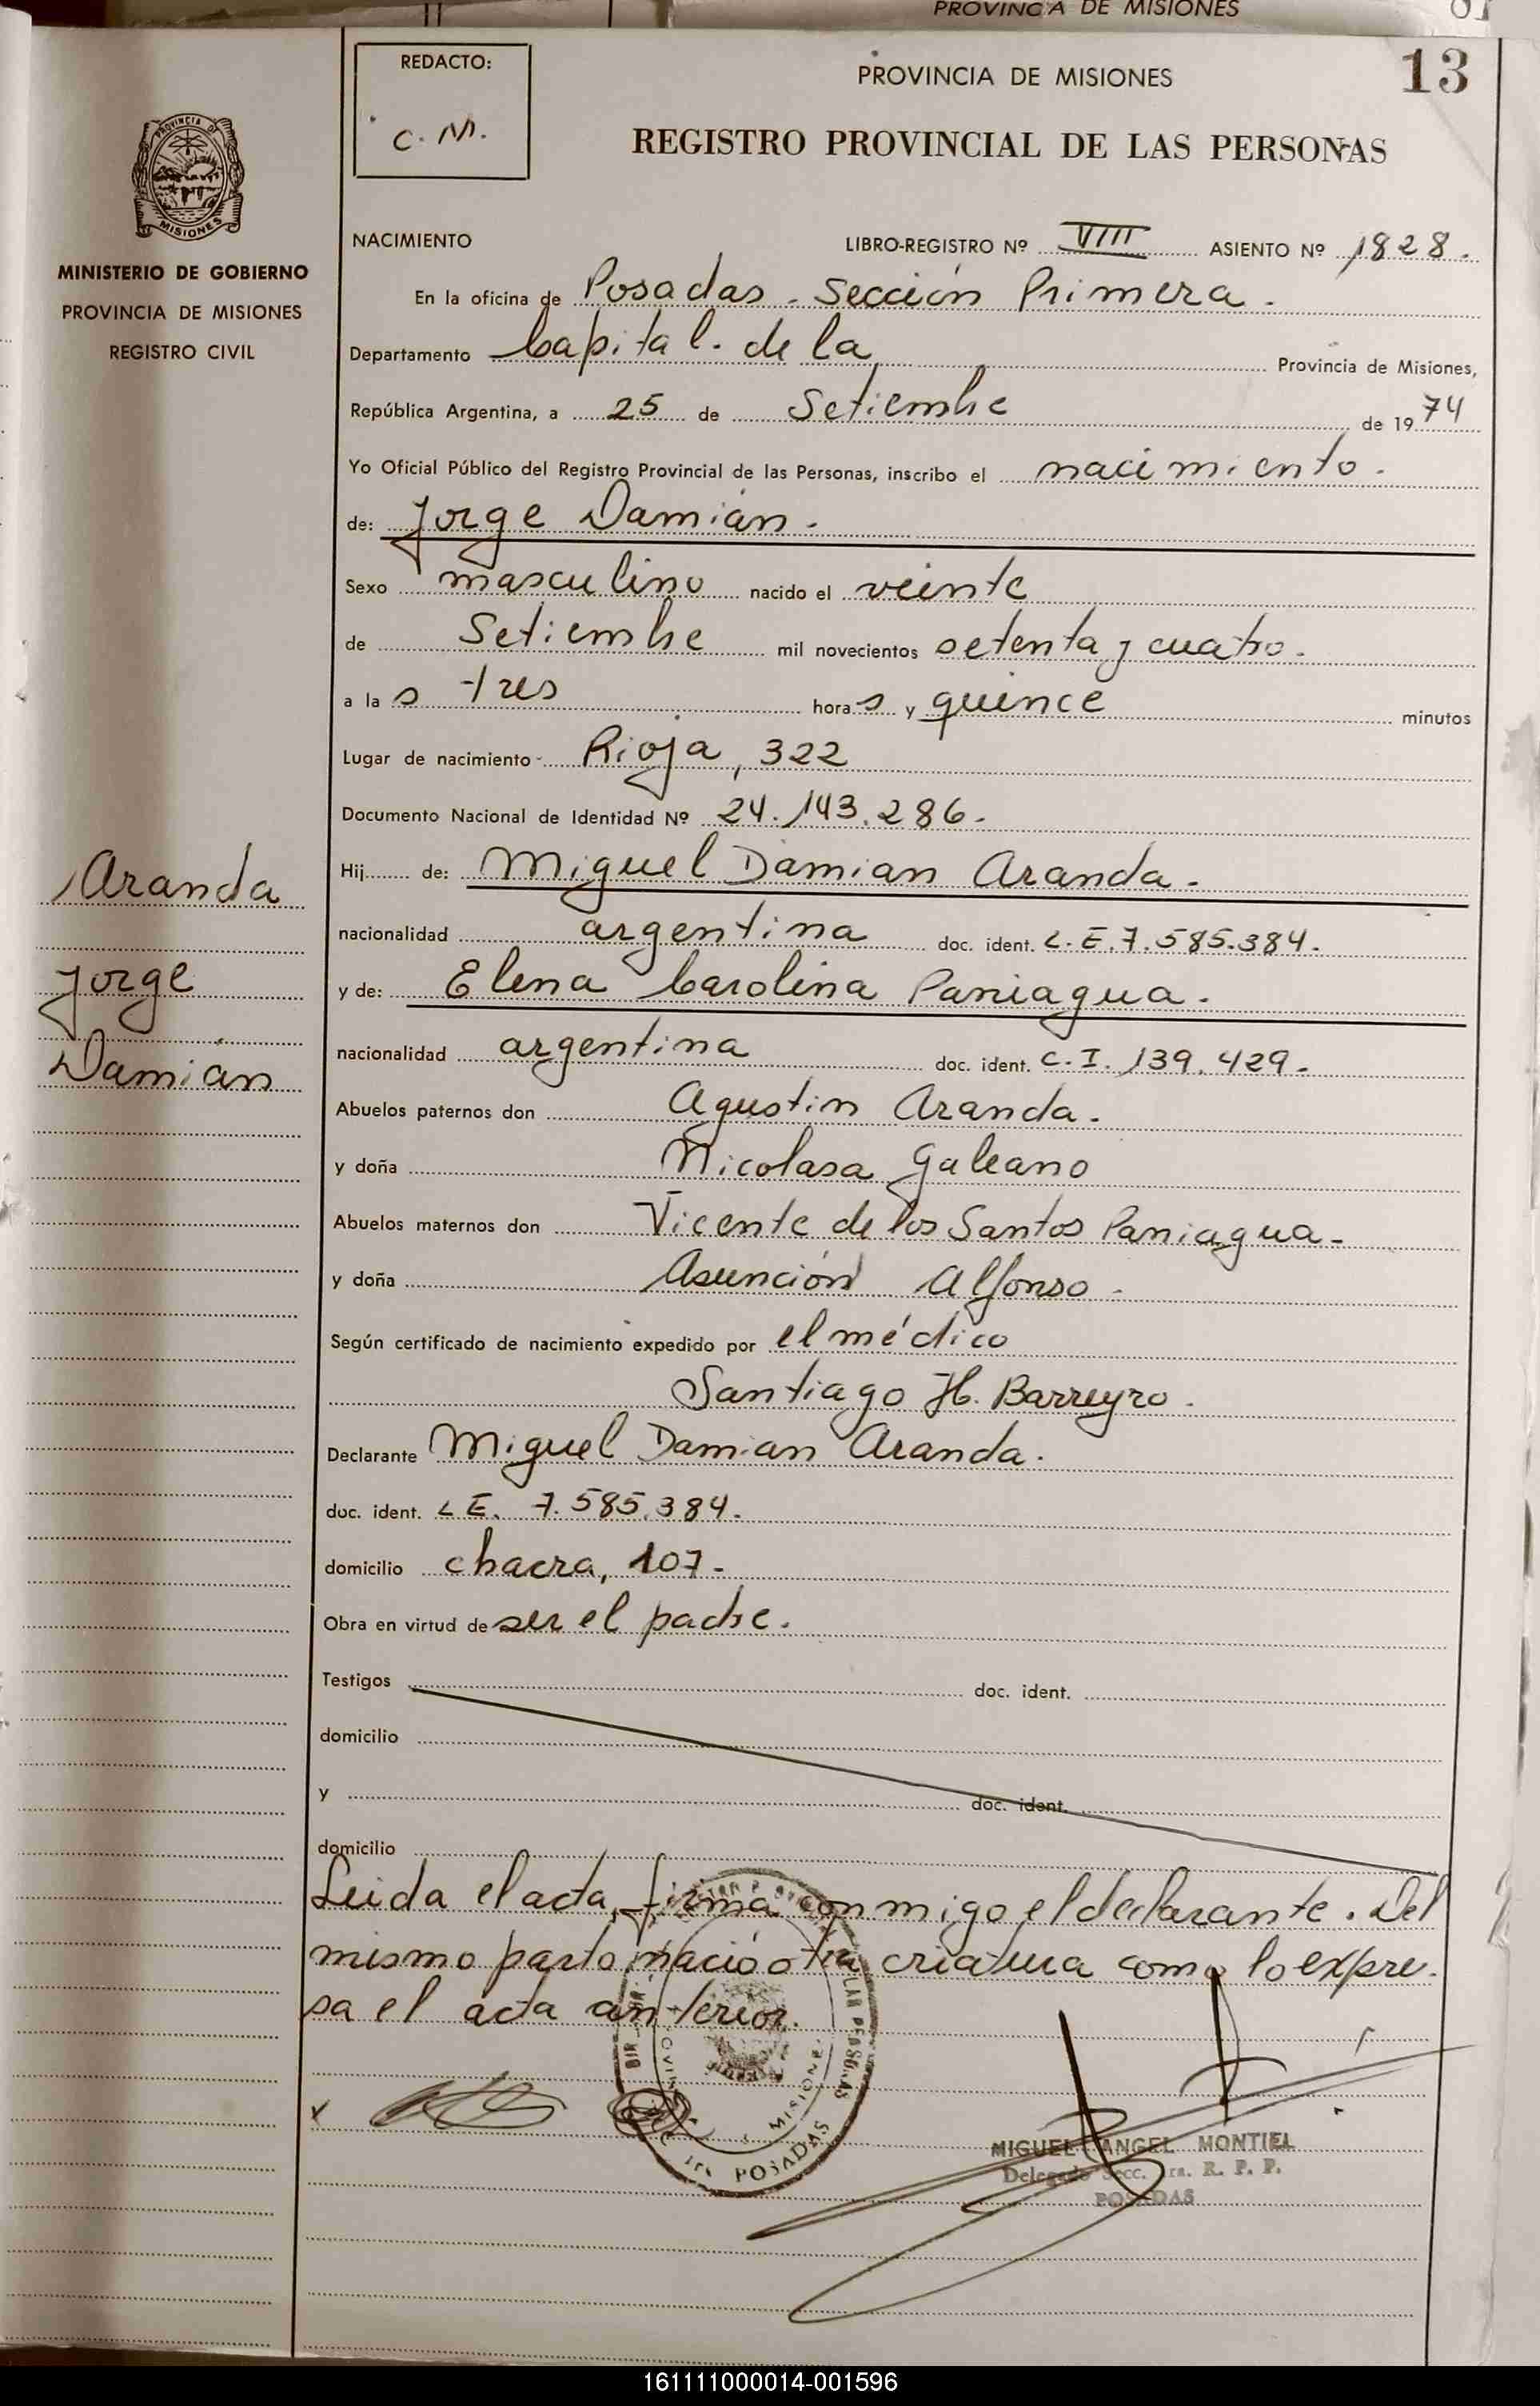 PROVINCIA DE MISIONES
REDACTO:
C. M.
PROVINCIA DE MISIONES
13
REGISTRO PROVINCIAL DE LAS PERSONAS
PROVINCIA DE
MISIONES
MINISTERIO DE GOBIERNO
PROVINCIA DE MISIONES
REGISTRO CIVIL
NACIMIENTO LIBRO-REGISTRO Nº VIII ASIENTO Nº 1828.
En la oficina de Posadas - Sección Primera.
Departamento Capital. de la Provincia de Misiones,
República Argentina, a 25 de Setiembre de 1974
Yo Oficial Público del Registro Provincial de las Personas, inscribo el nacimiento.
de: Jorge Damián.
Sexo masculino nacido el veinte
de Setiembre mil novecientos setenta y cuatro.
a la s tres hora s y quince minutos
Lugar de nacimiento Rioja, 322
Documento Nacional de Identidad Nº 24.143.286.
Hij de: Miguel Damian Aranda.
nacionalidad argentina doc. ident. L.E. 7.585.384.
y de: Elena Carolina Paniagua.
nacionalidad argentina doc. ident. C.I. 139.429.
Abuelos paternos don Agustin Aranda.
y doña Nicolasa Galeano
Abuelos maternos don Vicente de los Santos Paniagua.
y doña Asunción Alfonso.
Según certificado de nacimiento expedido por el médico
Santiago H. Barreyro.
Declarante Miguel Damian Aranda.
doc. ident. L.E. 7.585.384.
domicilio chacra, 107.
Obra en virtud de ser el padre.
Testigos doc. ident.
domicilio
y doc. ident.
domicilio
Leida el acta, firma conmigo el declarante. Del
mismo parto nació otra criatura como lo expre-
sa el acta anterior.
Aranda
Jorge
Damián
MISIONES
POSADAS
MIGUEL ANGEL MONTIEL
Delegado Secc. 1ra. R. P. P.
POSADAS
161111000014-001596